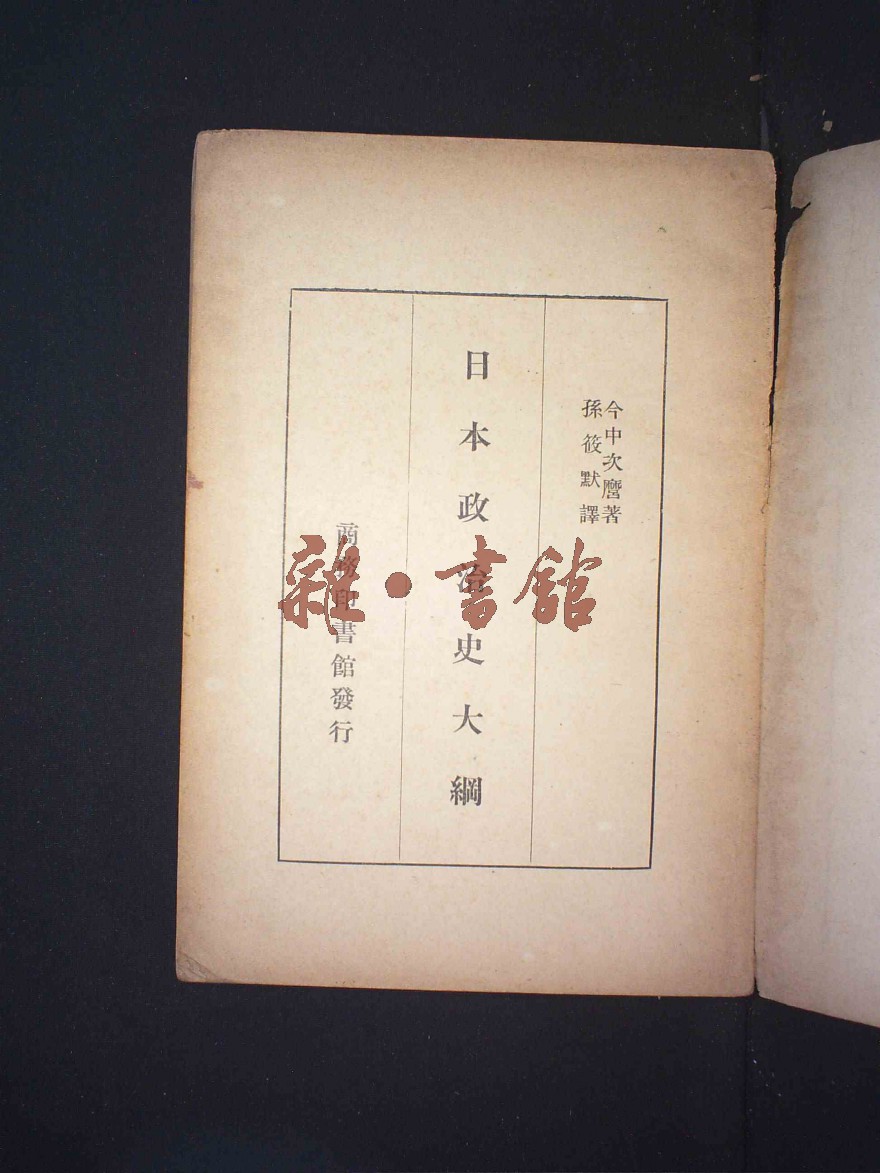 今中次麿著
孫筱默譯
日本政治史大綱
商務印書館發行
雜·書館